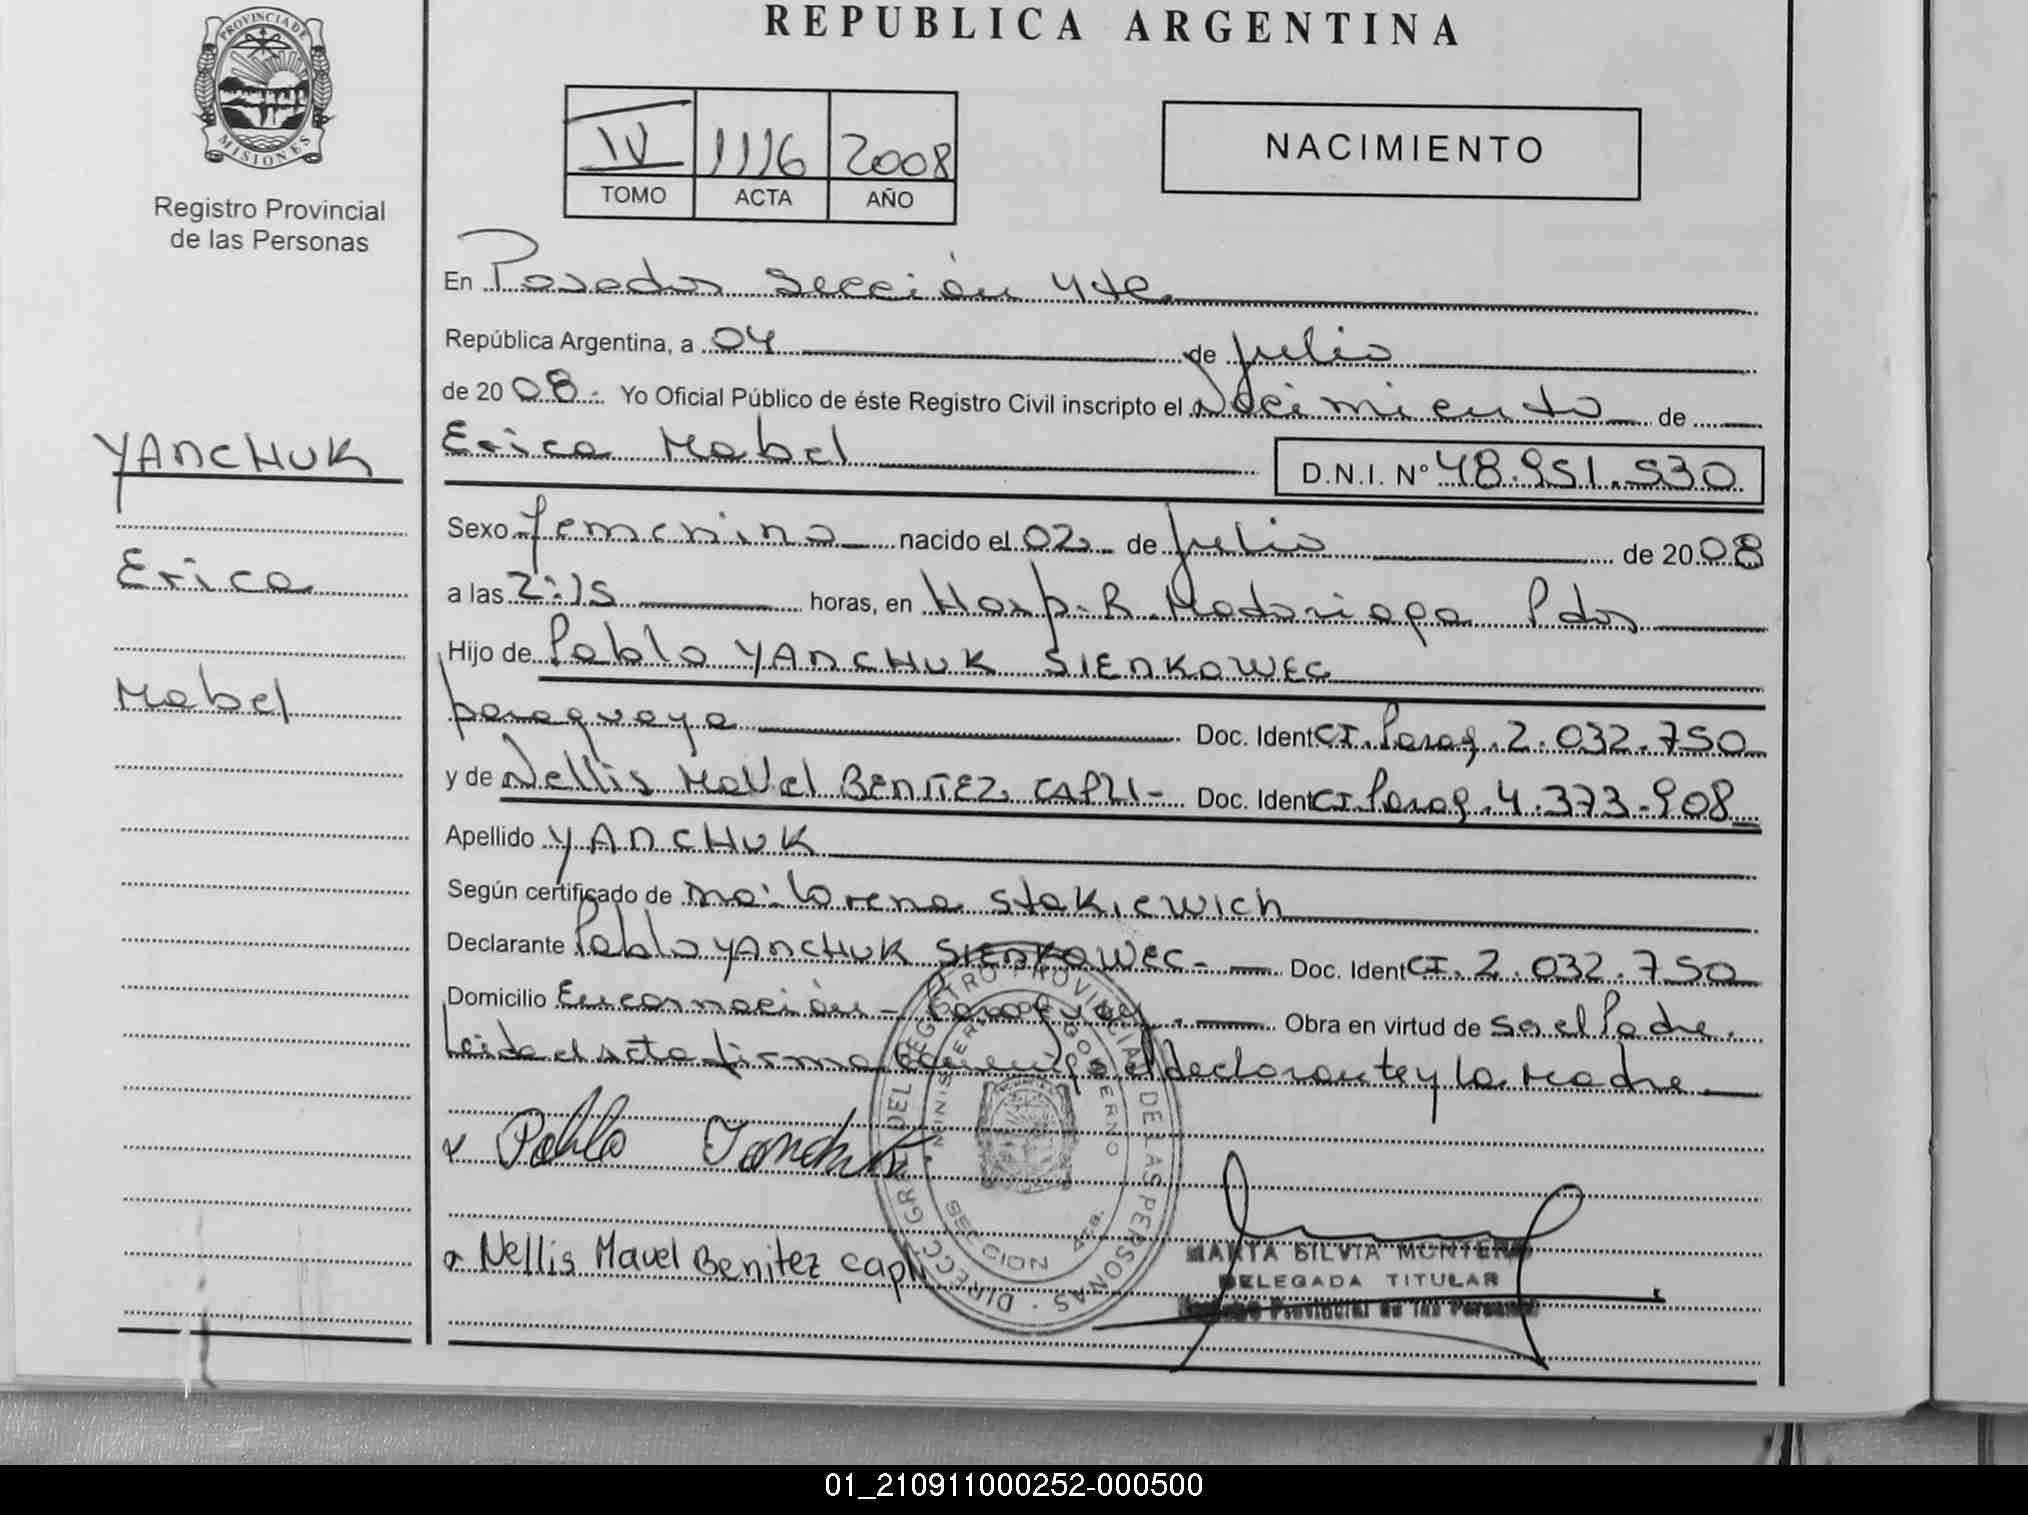 PROVINCIA DE
MISIONES
Registro Provincial
de las Personas
YANCHUK
Erica
Mabel
REPUBLICA ARGENTINA
IV 1116 2008
TOMO ACTA AÑO
NACIMIENTO
En Posadas Sección 4ta
República Argentina, a 04 de Julio
de 20 08. Yo Oficial Público de éste Registro Civil inscripto el Nacimiento de
Erica Mabel D.N.I. Nº 48.951.530
Sexo femenino nacido el 02 de Julio de 20 08
a las 2:15 horas, en Hosp. R. Madariaga Pdas
Hijo de Pablo YANCHUK SIENKOWEC
paraguaya Doc. Ident CI. Parag. 2.032.750
y de Nellis Mavel BENITEZ CAPLI- Doc. Ident CI Parag. 4.373.908
Apellido YANCHUK
Según certificado de Ma: Lorena Stakiewich
Declarante Pablo YANCHUK SIENKOWEC.- Doc. Ident CI. 2.032.750
Domicilio Encarnación - Paraguay. Obra en virtud de ser el Padre.
Leida el acta firma conmigo, el declarante y la Madre
Pablo Yanchuk
Nellis Mavel Benitez Capli
DIRECC. GRAL. DEL REGISTRO PROVINCIAL DE LAS PERSONAS
MINISTERIO DE GOBIERNO
SECCION 4ta.
MARTA SILVIA MONTERO
DELEGADA TITULAR
Registro Provincial de las Personas
01_210911000252-000500